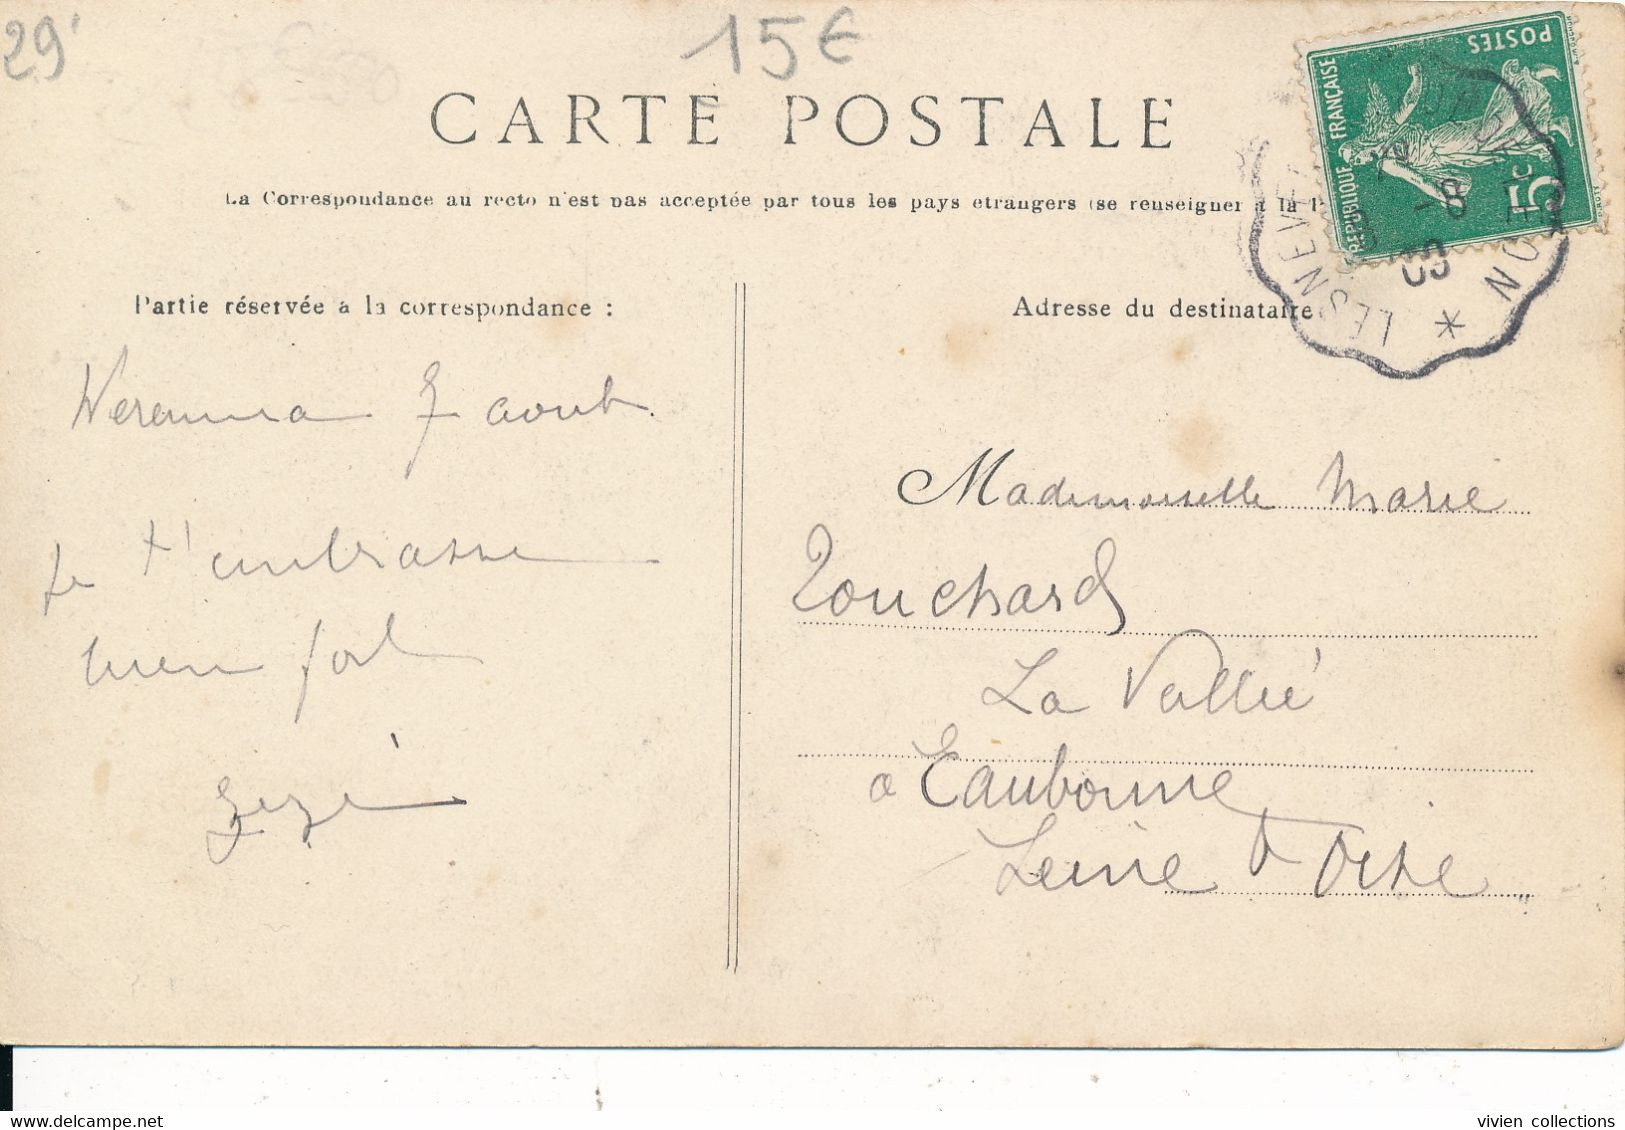 29'
15€
CARTE POSTALE
La Correspondance au recto n'est pas acceptée par tous les pays etrangers (se renseigner à la
POSTES
REPUBLIQUE FRANÇAISE
5c
LESNEVEN
*
Partie réservée à la correspondance :
Adresse du destinataire
7 aout
Je t'embrasse
bien fort
Zezé
Mademoiselle Marie
Touchard
La Vallée
a Eaubonne
Seine & Oise
delcampe.net
vivien collections